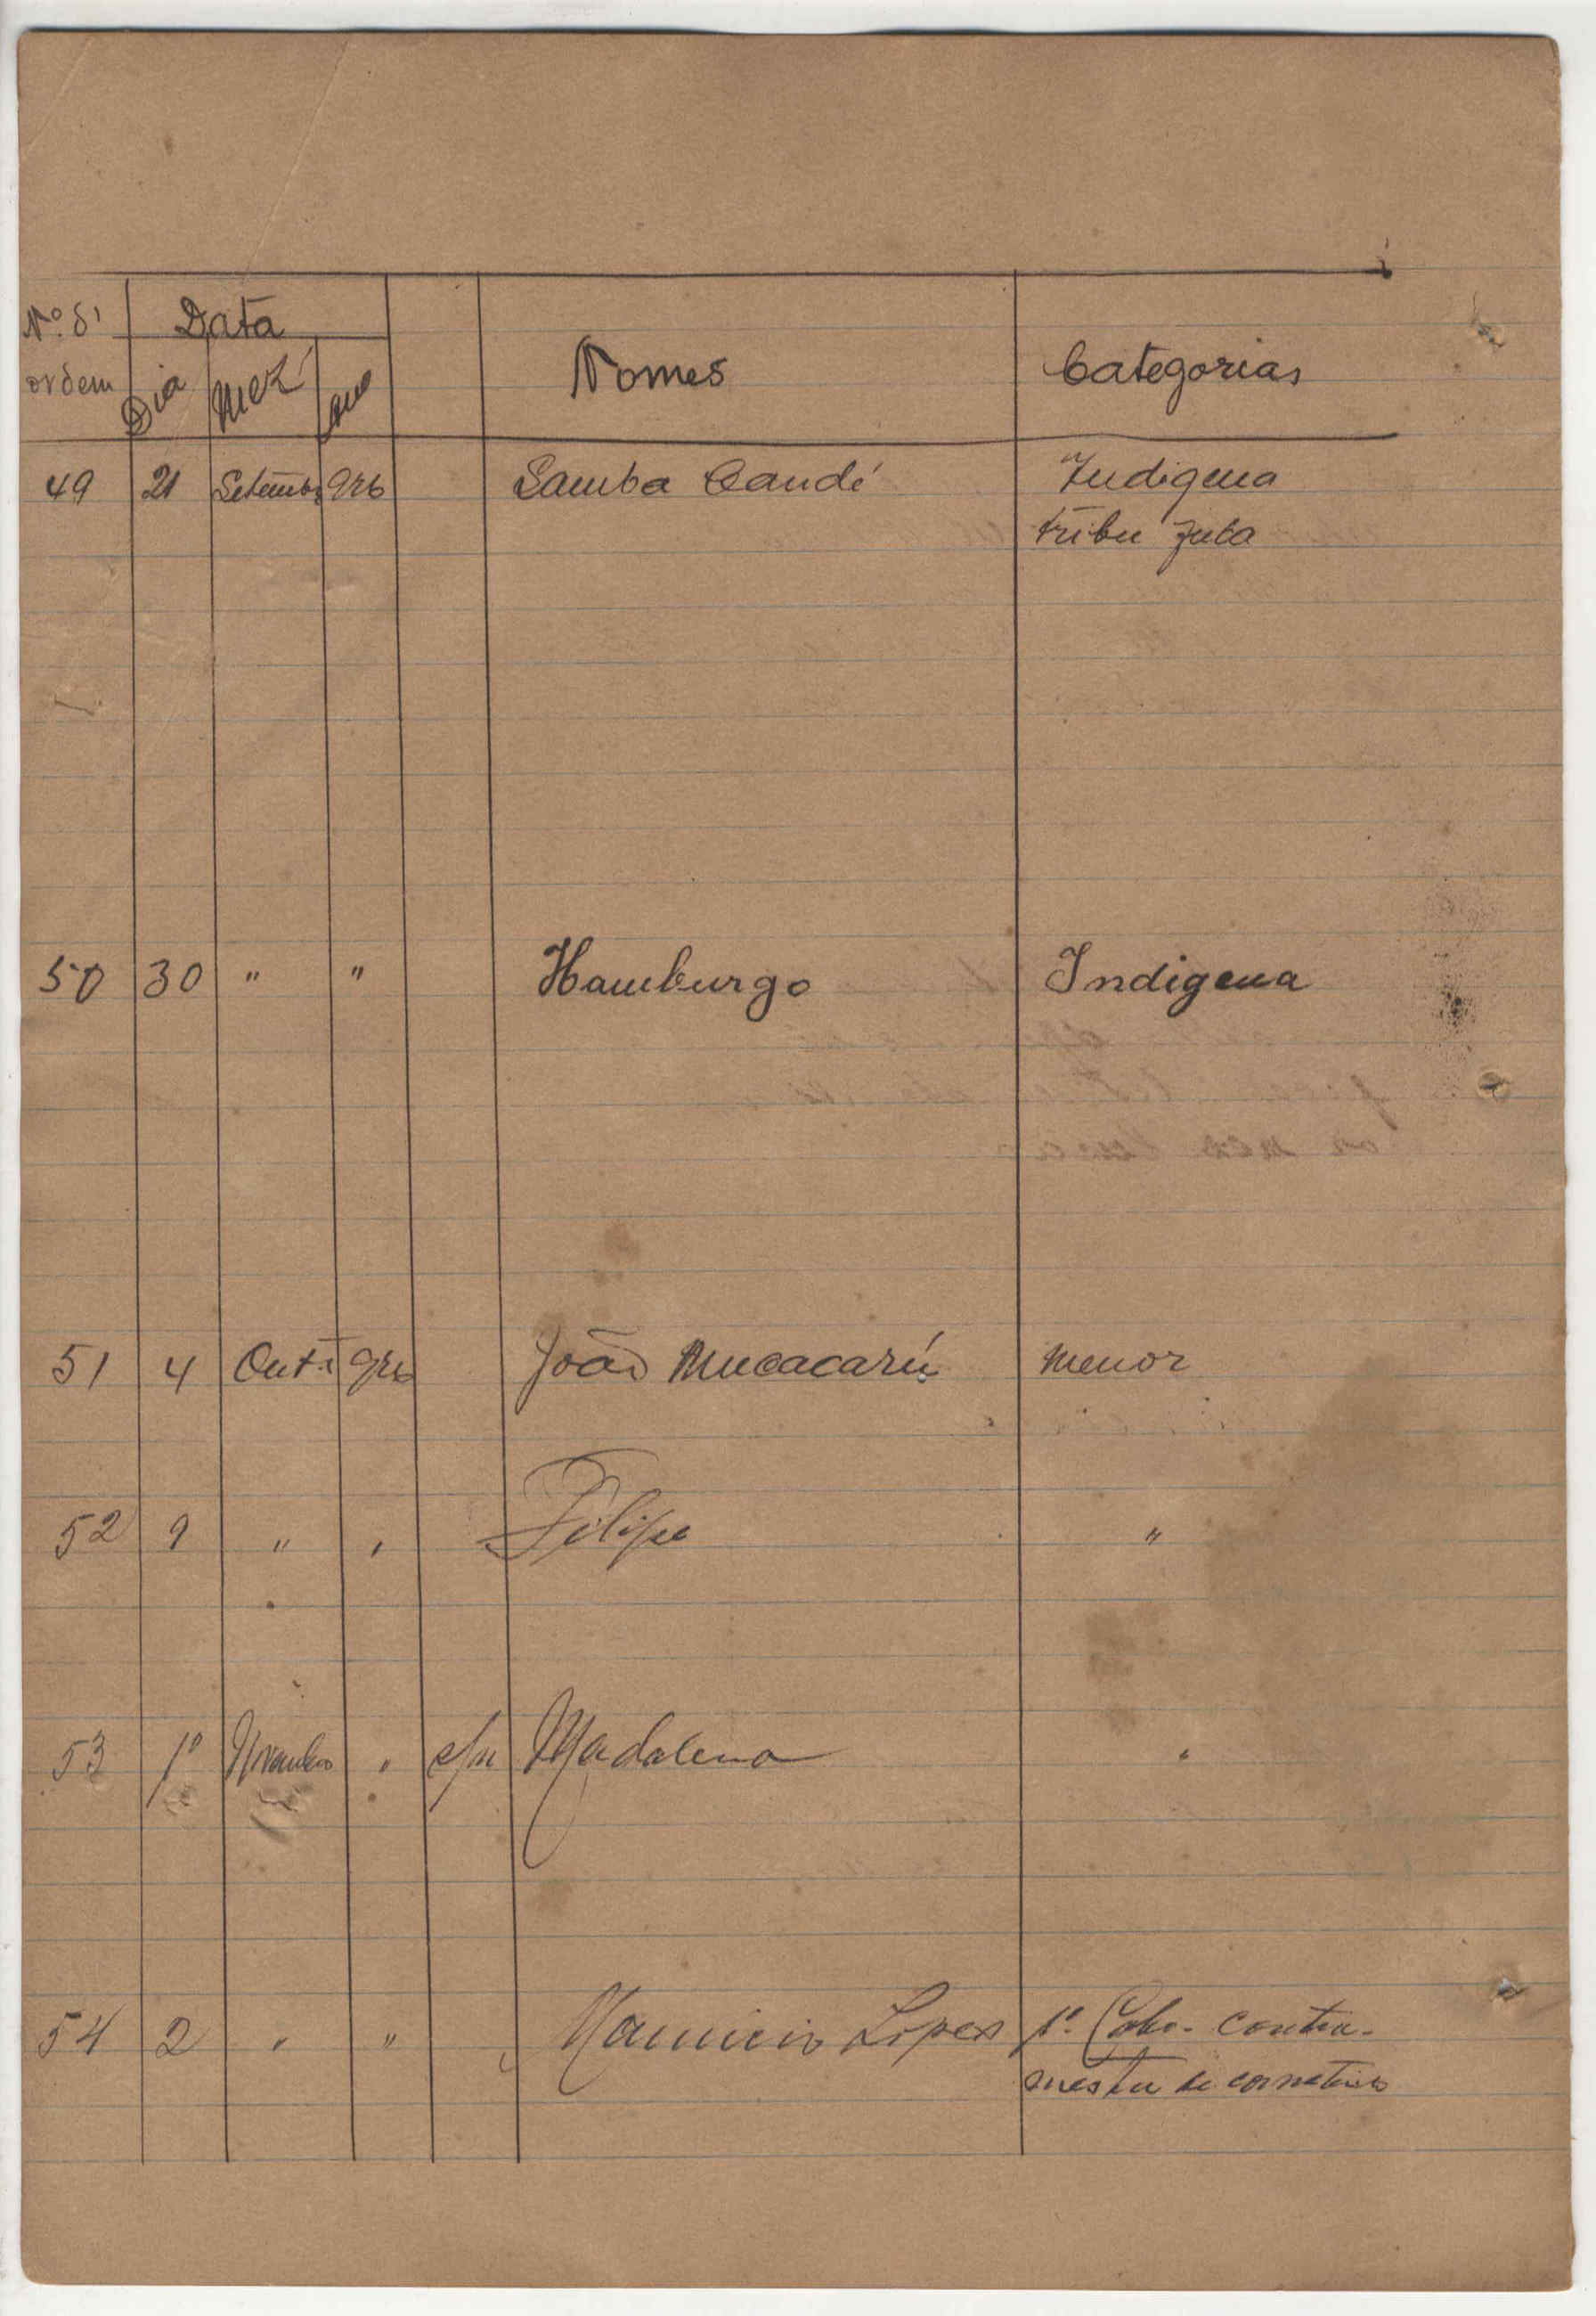 Nº. d'ordem Data
Dia Mez Ano Nomes Categorias
49 21 Setembº 926 Samba Candé Indigena
tribu fula
50 30 " " Hamburgo Indigena
51 4 Outº 926 João Mucacarú menor
52 9 " " Filipe "
53 1º Novembro " Madalena "
54 2 " " Mauricio Lopes 1º. Cabo-contra-
mestre de corneteiros